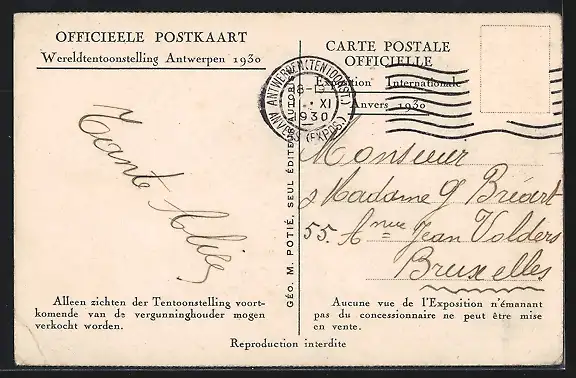 OFFICIEELE POSTKAART
Wereldtentoonstelling Antwerpen 1930
CARTE POSTALE
OFFICIELLE
Exposition Internationale
Anvers 1930
ANTWERPEN (TENTOONST.)
XI
1930
ANVERS (EXPOS.)
GÉO. M. POTIÉ, SEUL ÉDITEUR AUTORISÉ
Tante
Monsieur
Madame G Bréart
55. Anue Jean Volders
Bruxelles
Alleen zichten der Tentoonstelling voort-
komende van de vergunninghouder mogen
verkocht worden.
Aucune vue de l'Exposition n'émanant
pas du concessionnaire ne peut être mise
en vente.
Reproduction interdite